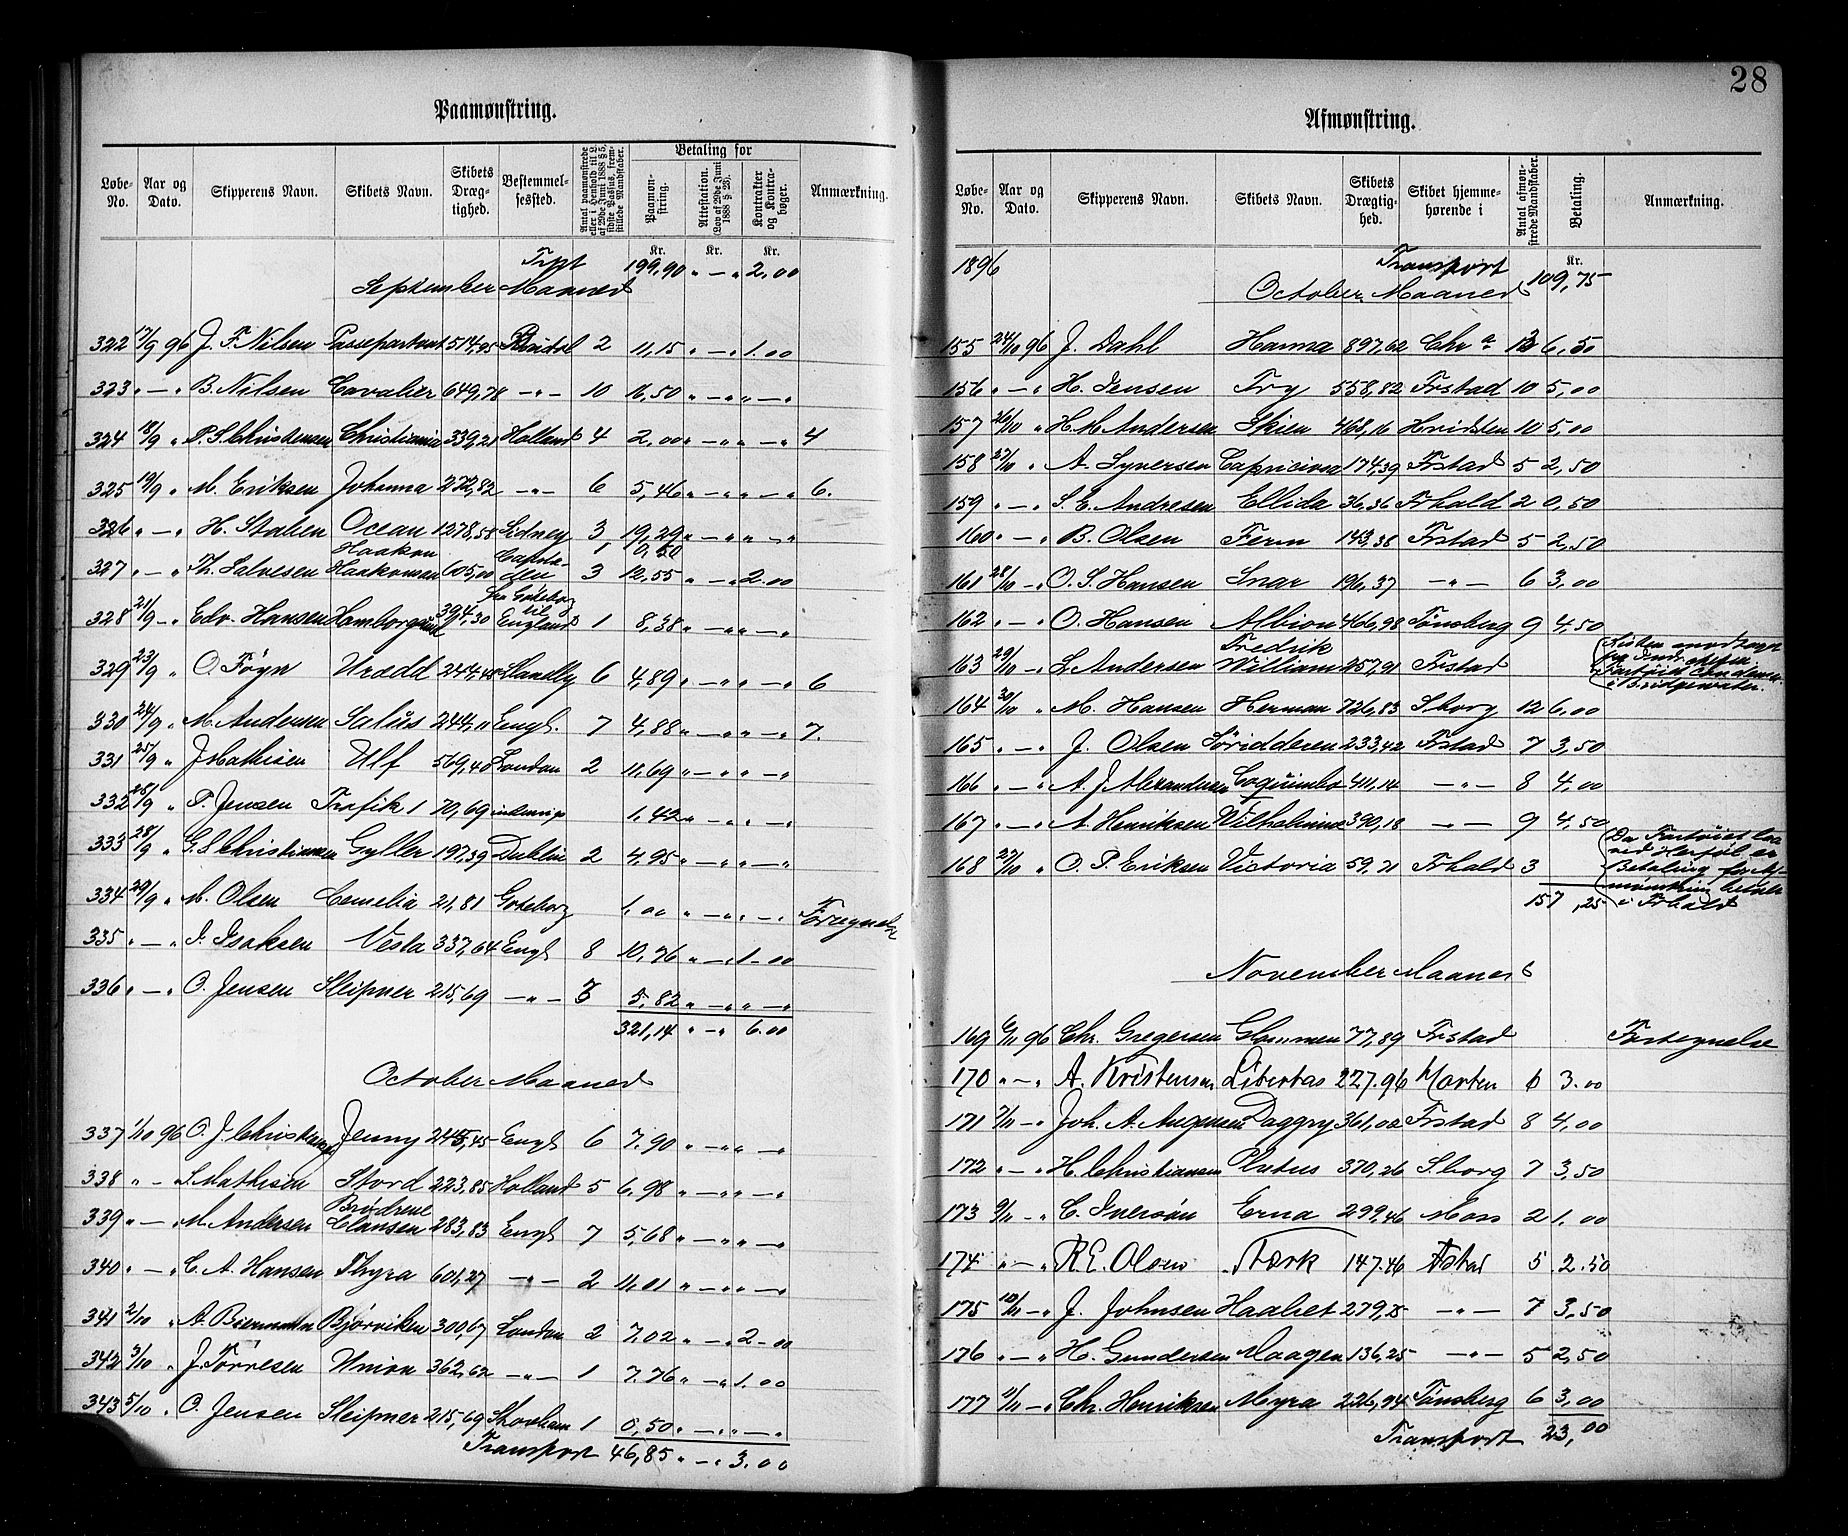 28
Paamønstring.
Løbe-No. | Aar og Dato. | Skipperens Navn. | Skibets Navn. | Skibets Drægtighed. | Bestemmelsessted. | Antal paamønstrede eller i Henhold til L. af 29de Juni 1888 § 5, sidste Passus, fremstillede Mandskaber. | Betaling for | Paamønstring. | Attestation. (Lov af 29de Juni 1888 § 23). | Kontrakter og Kontrabøger. | Anmærkning.
Kr. Kr. Kr.
Trpt 199,90 „ — „ 2,00
September Maaned
322 17/9 96 J. F. Nilsen Passepartout 514,95 Bristol 2 11,15 „ — „ 1.00
323 „ — „ B. Nilsen Cavalier 649,78 — „ — 10 16,50 „ — „ „ — „
324 18/9 „ P. S. Christensen Christiania 339,21 Holland 4 2,00 „ — „ „ — „ 4
325 19/9 „ M. Eriksen Johanna 272,82 — „ — 6 5,46 „ — „ „ — „ 6.
326 „ — „ H. Staben Ocean 1278,58 Sidney 3 19,29 „ — „ „ — „
Haakon 1 0,50
327 „ — „ Th. Salvesen Haakonsen 605,00 3 12,55 „ — „ 2.00
328 21/9 — „ Edv. Hansen 394,30 fra Goteborg til England 1 8,38 „ — „ „ — „
329 23/9 „ O. Föyn Urædd 244,48 Llanelly 6 4,89 „ — „ „ — „ 6
330 24/9 „ M. Andersen Salus 244,11 Engl. 7 4,88 „ — „ „ — „ 7.
331 25/9 „ J Mathisen Ulf 569,40 London 2 11,69 „ — „ „ — „
332 28/9 „ P. Jensen Trafik 1 70,69 indenrigs 1,42 „ — „ „ — „
333 28/9 „ G. S. Christiansen Gyller 197,39 Dublin 2 4.95 „ — „ „ — „
334 29/9 „ M. Olsen Camelia 21,81 Goteborg 1.00 „ — „ „ — „
335 „ — „ I. Isaksen Vesta 337,64 Engl 8 10,76 „ — „ 1-00
336 „ — „ O. Jensen Sleipner 215,69 — „ — 7 5,82 „ — „ „ — „
321,14 „ — „ 6.00
October Maaned
337 1/10 96 O. J. Christiansen Jenny 245,45 Engl 6 7.90 „ — „ „ — „
338 „ — S. Mathisen Stord 223,85 Holland 5 6,98 „ — „ „ — „
339 „ — „ M. Andersen Brødrene Clausen 283,83 Engl 7 5,68 „ — „ „ — „
340 „ — „ C. A. Hansen Thyra 601,27 — „ — 2 11,01 „ — „ „ — „
341 2/10 „ A. Biermann Bjørviken 300,67 London 2 7.02 „ — „ 2-00
342 3/10 „ J. Törresen Union 362,62 — „ — 1 7.76 „ — „ 1.00
343 5/10 „ O. Jensen Sleipner 215,69 1 0,50 „ — „ „ — „
Transport 46,85 „ — „ 3.00
Afmønstring.
Løbe-No. | Aar og Dato. | Skipperens Navn. | Skibets Navn. | Skibets Drægtighed. | Skibet hjemmehørende i | Antal afmønstrede Mandskaber. | Betaling. | Anmærkning.
Kr.
1896 Transport 109,75
October Maaned
155 24/10 96 J. Dahl Hanna 897,62 Chr a 13 6,50
156 „ — „ H. Jensen Fry 558,82 Frstad 10 5,00
157 26/10 „ H. M Andersen Skien 468,16 Hvidsten 10 5,00
158 27/10 „ A. Syversen 174,39 Frstad 5 2,50
159 „ — „ S. E. Andresen Ellida 36,36 Frhald 2 0,50
160 „ — „ B. Olsen Ferm 143,38 Frstad 5 2,50
161 28/10 — „ O. S. Hansen Snar 196,37 — „ — 6 3,00
162 „ — „ O. Hansen Albion 466,98 Tönsberg 9 4,50
163 29/10 — „ L. Andersen Fredrik William 257,91 Frstad
i Bridgewater.
164 30/10 „ M. Hansen Herman 726,83 Sborg 12 6,00
165 „ — „ J. Olsen Söridderen 233,42 Frstad 7 3,50
166 „ — „ A. J. Alexandersen Coquimbo 411,14 — „ — 8 4,00
167 „ — „ A. Henriksen Wilhelmine 390,18 — „ — 9 4,50
168 27/10 „ O. P. Eriksen Victoria 59,71 Frhald 3
Da Fartöiet laa ved Herföl er Betaling for Afmönstring betalt i Frhald
157,25
November Maaned
169 6/11 96 Chr. Gregersen Glommen 77,89 Frstad Fortegnelse
170 „ — „ A. Kristensen Libertas 227.96 Horten 6 3.00
171 7/11 — „ Joh. A. Augensen Daggry 361,02 Frstad 8 4,00
172 „ — „ H. Christiansen Plutus 370,26 Sborg 7 3,50
173 9/11 — „ C. Iversön Erna 299,46 Moss 2 1.00
174 „ — „ R. E. Olsen Stærk 147.46 Fstad 5 2.50
175 10/11 — „ J. Johnsen Haabet 279,75 — „ — 7 3,50
176 „ — „ H. Gundersen Maagen 136,25 — „ — 5 2,50
177 11/11 — „ Chr. Henriksen Myra 226,94 Tönsberg 6 3,00
Transport 23,00